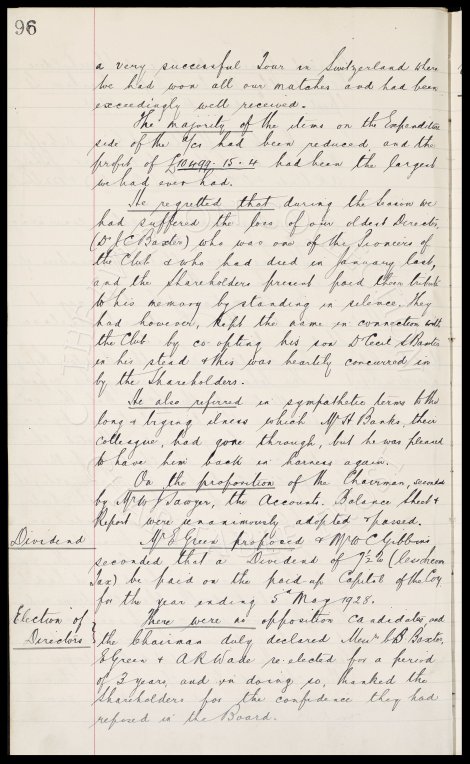 96
a very successful Tour in Switzerland where
we had won all our matches and had been
exceedingly well received.
The majority of the items on the Expenditure
side of the a/cs had been reduced, and the
profit of £10499.15.4 had been the largest
we had ever had.
He regretted that during the season we
had suffered the loss of our oldest Director
(Dr J C Baxter) who was one of the Pioneers of
the Club & who had died in January last,
and the Shareholders present paid their tribute
to his memory by standing in silence. They
had however, kept the name in connection with
the Club by co-opting his son Dr Cecil S Baxter
in his stead & this was heartily concurred in
by the Shareholders.
He also referred in sympathetic terms to the
long & trying illness which Mr H Banks, their
Colleague, had gone through, but he was pleased
to have him back in harness again.
On the proposition of the Chairman, seconded
by Mr W J Sawyer, the Accounts, Balance Sheet &
Report were unanimously adopted & passed.
Dividend Mr E Green proposed & Mr W C Gibbins
seconded that a Dividend of 7½% (less Income
Tax) be paid on the paid-up Capital of the Coy
for the year ending 5th May 1928.
Election of There were no opposition candidates, and
Directors the Chairman duly declared Messrs C S Baxter,
E Green & A R Wade re-elected for a period
of 3 years, and in doing so, thanked the
shareholders for the confidence they had
reposed in the Board.